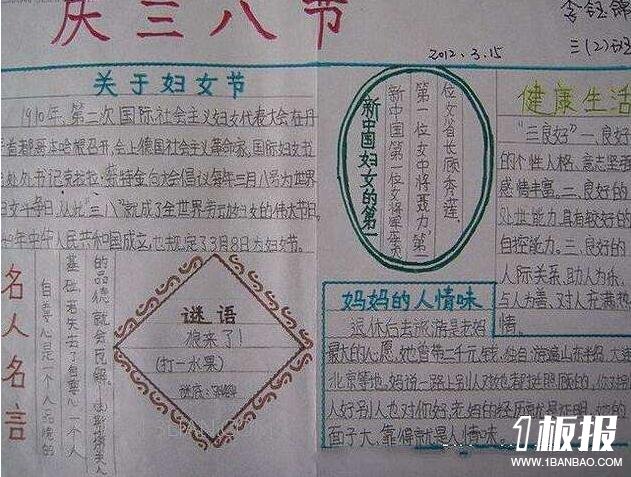 庆三八节
李钰锦
2012.3.15
三(2)班
关于妇女节
1910年,第二次国际社会主义妇女代表大会在丹
首都哥本哈根召开,会上德国社会主义革命家、国际妇女
处书记克拉拉·蔡特金向大会倡议每年三月八号为世界
妇女斗争日,从此"三八"就成了全世界劳动妇女的伟大节日。
年中华人民共和国成立,也规定了3月8日为妇女节。
新中国妇女的第一
新中国第一位女将军
第一位女中将聂力 第一
位女省长顾秀莲。
健康生活
"三良好"一、良好
的个性人格,意志坚
感情丰富。二、良好的
处世能力,具有较好的
自控能力。三、良好的
人际关系,助人为乐,
与人为善,对人充满热
情。
名人名言
自尊心是一个人品德的
基础,若失去了自尊心,一个人
的品德就会瓦解。
谜语
狼来了!
(打一水果)
谜底:
妈妈的人情味
退休后去旅游是老妈
最大的心愿。她曾带二千元钱,独自海遍山东半岛,大连
北京等地。妈说一路上别人对她都挺照顾的,你对别
人好别人也对你好。老妈的经历就是证明,
面子大,靠得就是人情味。
1板报
WWW.1BANBAO.COM